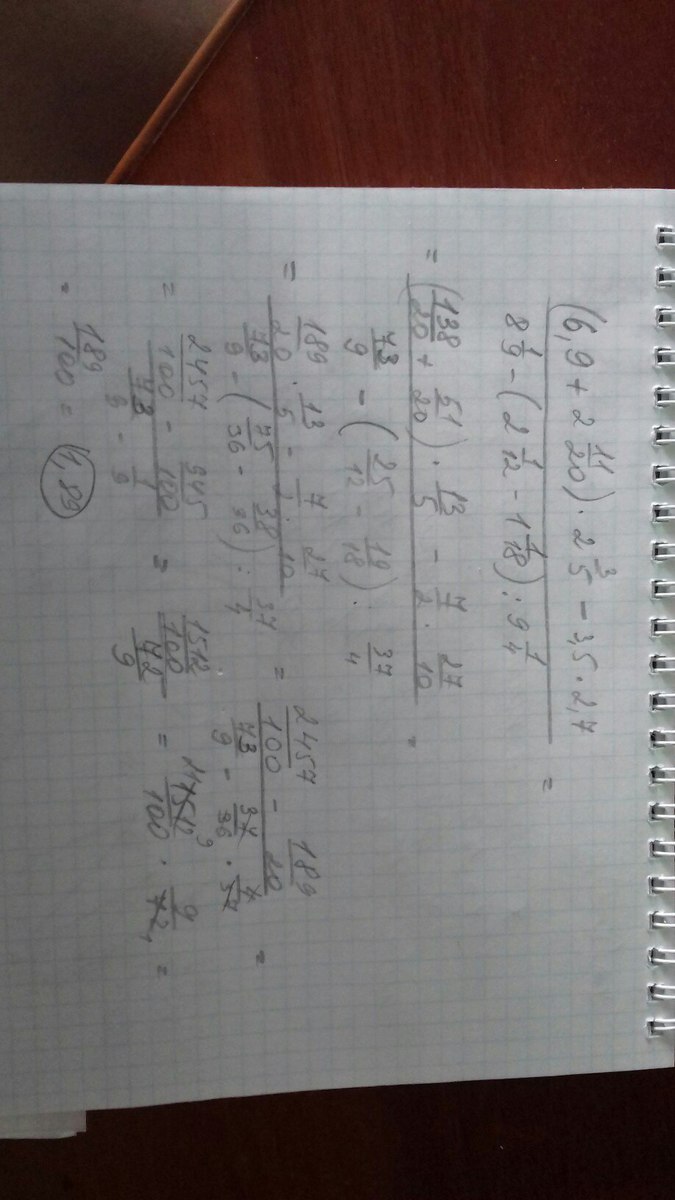 (6,9 + 2 11/20) · 2 3/5 - 3,5 · 2,7
8 1/9 - (2 1/12 - 1 1/18) : 9 1/4 =
= (138/20 + 51/20) · 13/5 - 7/2 · 27/10
73/9 - (25/12 - 19/18) : 37/4 =
= 189/20 · 13/5 - 7/2 · 27/10
73/9 - (75/36 - 38/36) : 37/4 =
2457/100 - 189/20
73/9 - 37/36 · 4/37 =
= 2457/100 - 945/100
73/9 - 1/9 =
1512/100
72/9
= 1512/100 · 9/72 =
= 189/100 = 1,89